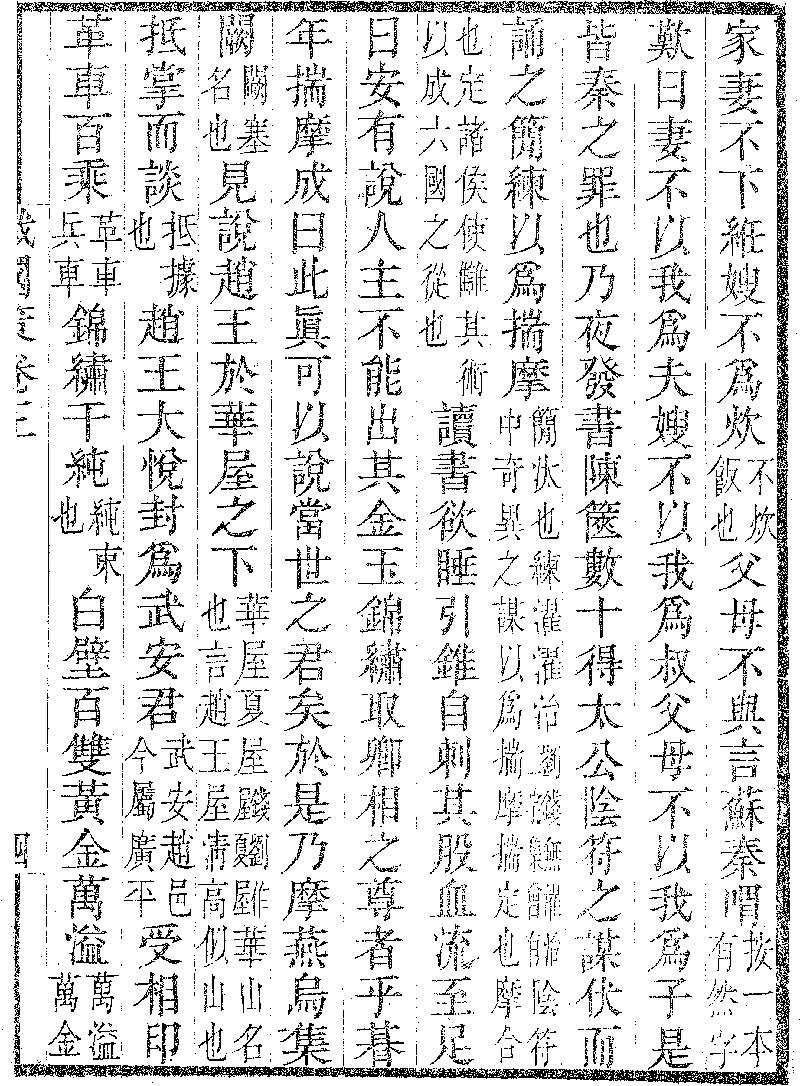 家妻不下絍嫂不爲炊不炊飯也父母不與言蘇秦喟按一本有然字
歎曰妻不以我爲夫嫂不以我爲叔父母不以我爲子是
皆秦之罪也乃夜發書陳篋數十得太公陰符之謀伏而
誦之簡練以爲揣摩簡汰也練濯濯治劉陰符中奇異之謀以爲揣摩揣定也摩合
也定諸侯使讎其術以成六國之從也讀書欲睡引錐自刺其股血流至足
曰安有說人主不能出其金玉錦繡取卿相之尊者乎朞
年揣摩成曰此眞可以說當世之君矣於是乃摩燕烏集
闕闕塞名也見說趙王於華屋之下華屋夏屋華山名也言趙王屋清高似山也
抵掌而談抵據也趙王大悅封爲武安君武安趙邑今屬廣平受相印
革車百乘革車兵車錦繡千純純束也白璧百雙黃金萬溢萬溢萬金
戰國策卷三
四